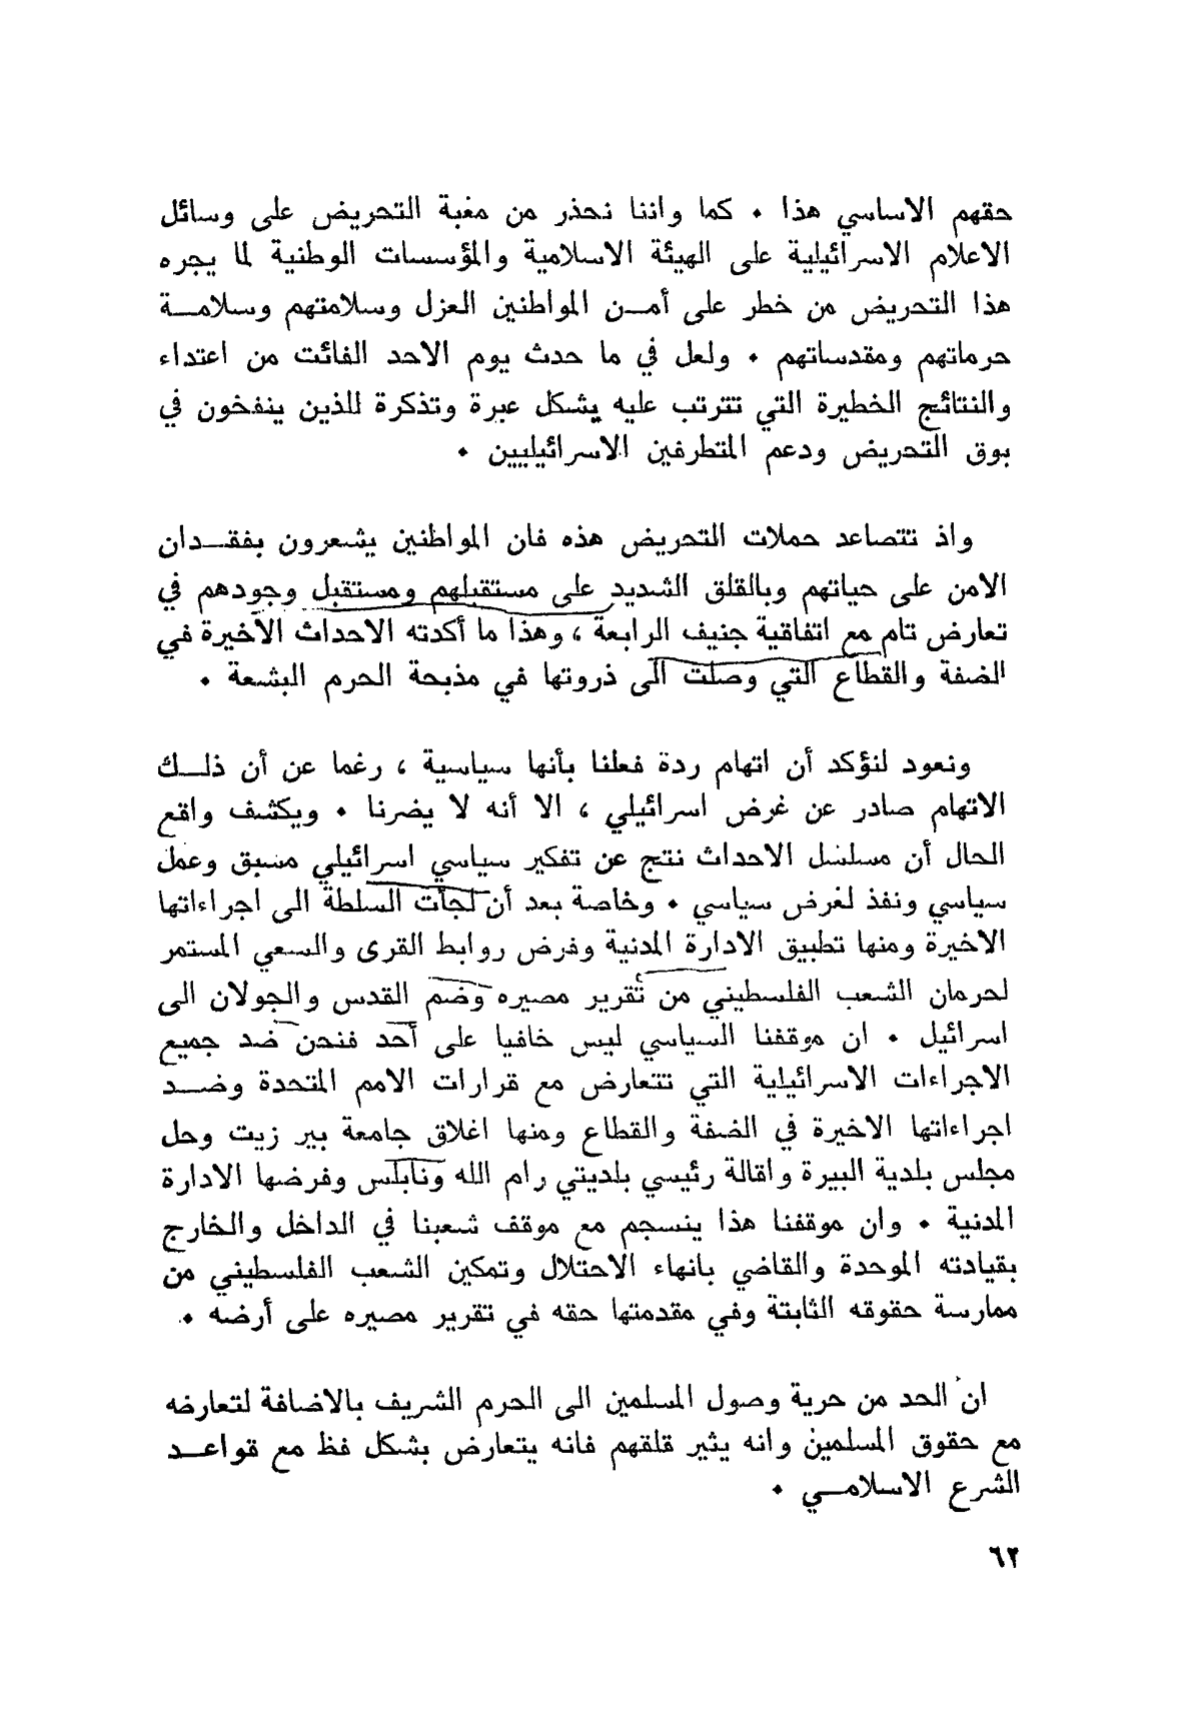 حقهم الاساسي هذا ٠ كما واننا نحذر من مغبة التحريض على وسائل
الاعلام الاسرائيلية على الهيئة الاسلامية والمؤسسات الوطنية لما يجره
هذا التحريض من خطر على أمـن المواطنين العزل وسلامتهم وسلامـة
حرماتهم ومقدساتهم ٠ ولعل في ما حدث يوم الاحد الفائت من اعتداء
والنتائج الخطيرة التي تترتب عليه يشكل عبرة وتذكرة للذين ينفخون في
بوق التحريض ودعم المتطرفين الاسرائيليين ٠
واذ تتصاعد حملات التحريض هذه فان المواطنين يشعرون بفقـدان
الامن على حياتهم وبالقلق الشديد على مستقبلهم ومستقبل وجودهم في
تعارض تام مع اتفاقية جنيف الرابعة ، وهذا ما أكدته الاحداث الأخيرة في
الضفة والقطاع التي وصلت الى ذروتها في مذبحة الحرم البشعة ٠
ونعود لنؤكد أن اتهام ردة فعلنا بأنها سياسية ، رغما عن أن ذلـك
الاتهام صادر عن غرض اسرائيلي ، الا أنه لا يضرنا ٠ ويكشف واقع
الحال أن مسلسل الاحداث نتج عن تفكير سياسي اسرائيلي مسبق وعمل
سياسي ونفذ لغرض سياسي ٠ وخاصة بعد أن لجأت السلطة الى اجراءاتها
الاخيرة ومنها تطبيق الادارة المدنية وفرض روابط القرى والسعي المستمر
لحرمان الشعب الفلسطيني من تقرير مصيره وضم القدس والجولان الى
اسرائيل ٠ ان موقفنا السياسي ليس خافيا على أحد فنحن ضد جميع
الاجراءات الاسرائيلية التي تتعارض مع قرارات الامم المتحدة وضـد
اجراءاتها الاخيرة في الضفة والقطاع ومنها اغلاق جامعة بير زيت وحل
مجلس بلدية البيرة واقالة رئيسي بلديتي رام الله ونابلس وفرضها الادارة
المدنية ٠ وان موقفنا هذا ينسجم مع موقف شعبنا في الداخل والخارج
بقيادته الموحدة والقاضي بانهاء الاحتلال وتمكين الشعب الفلسطيني من
ممارسة حقوقه الثابتة وفي مقدمتها حقه في تقرير مصيره على أرضه ٠
ان الحد من حرية وصول المسلمين الى الحرم الشريف بالاضافة لتعارضه
مع حقوق المسلمين وانه يثير قلقهم فانه يتعارض بشكل فظ مع قواعـد
الشرع الاسلامـي ٠
٦٢